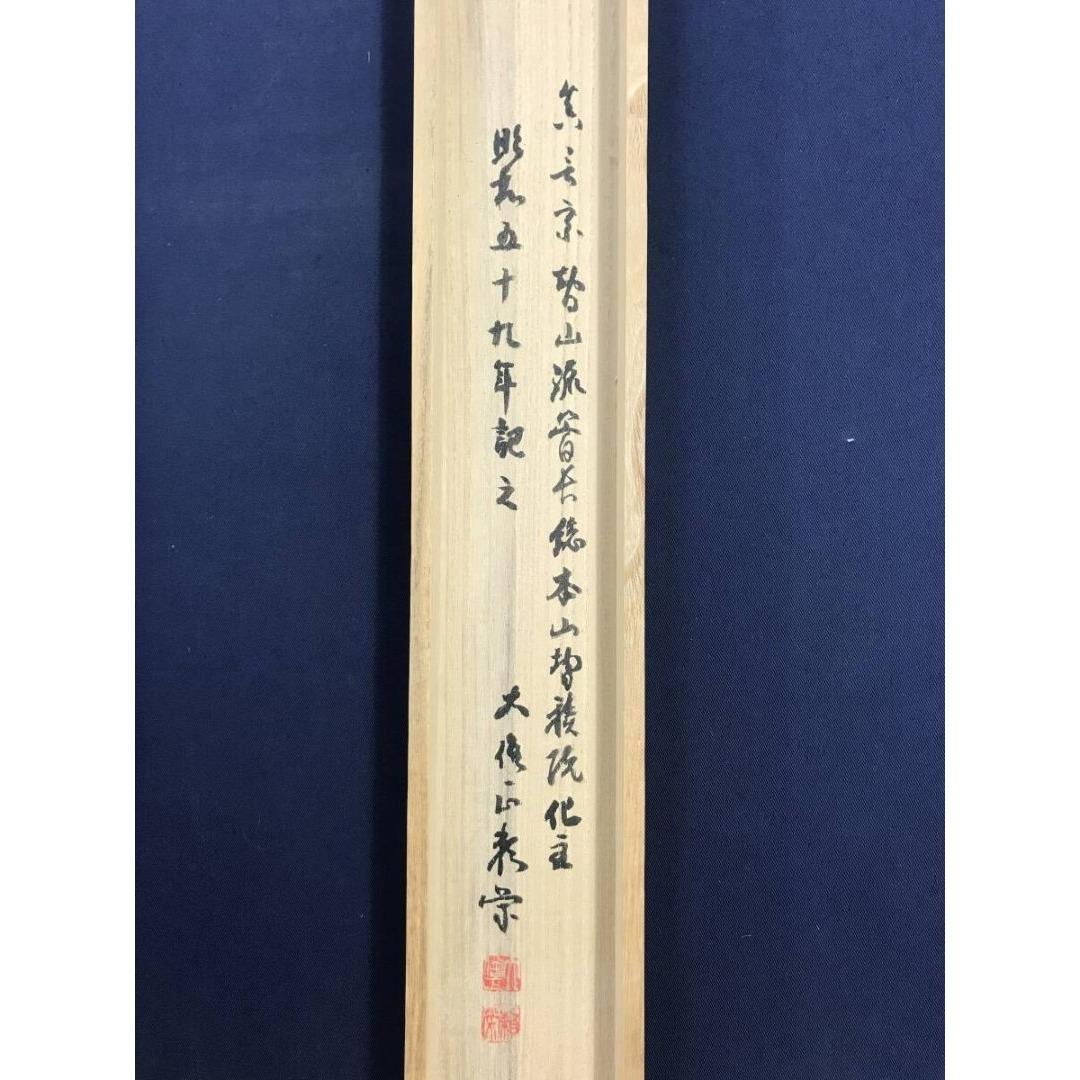 真言宗智山派管長総本山智積院化主
昭和五十九年記之
大僧正